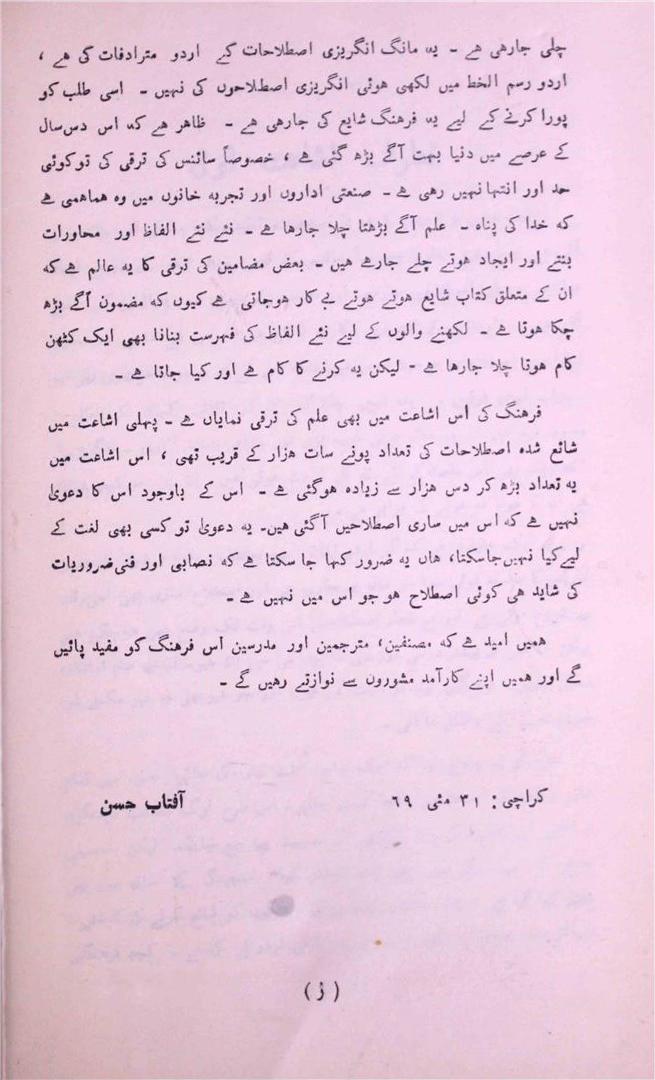 چلی جارہی ہے ۔ یہ مانگ انگریزی اصطلاحات کے اردو مترادفات کی ہے ،
اردو رسم الخط میں لکھی ہوئی انگریزی اصطلاحوں کی نہیں ۔ اسی طلب کو
پورا کرنے کے لیے یہ فرہنگ شایع کی جارہی ہے ۔ ظاہر ہے کہ اس دس سال
کے عرصے میں دنیا بہت آگے بڑھ گئی ہے ، خصوصاً سائنس کی ترقی کی تو کوئی
حد اور انتہا نہیں رہی ہے ۔ صنعتی اداروں اور تجربہ خانوں میں وہ ہماہمی ہے
کہ خدا کی پناہ ۔ علم آگے بڑھتا چلا جارہا ہے ۔ نئے نئے الفاظ اور محاورات
بنتے اور ایجاد ہوتے چلے جارہے ہیں ۔ بعض مضامین کی ترقی کا یہ عالم ہے کہ
ان کے متعلق کتاب شایع ہوتے ہوتے بے کار ہوجاتی ہے کیوں کہ مضمون آگے بڑھ
چکا ہوتا ہے ۔ لکھنے والوں کے لیے نئے الفاظ کی فہرست بنانا بھی ایک کٹھن
کام ہوتا چلا جارہا ہے ۔ لیکن یہ کرنے کا کام ہے اور کیا جاتا ہے ۔
فرہنگ کی اس اشاعت میں بھی علم کی ترقی نمایاں ہے ۔ پہلی اشاعت میں
شائع شدہ اصطلاحات کی تعداد پونے سات ہزار کے قریب تھی ، اس اشاعت میں
یہ تعداد بڑھ کر دس ہزار سے زیادہ ہوگئی ہے ۔ اس کے باوجود اس کا دعویٰ
نہیں ہے کہ اس میں ساری اصطلاحیں آگئی ہیں۔ یہ دعویٰ تو کسی بھی لغت کے
لیے کیا نہیں جاسکتا، ہاں یہ ضرور کہا جا سکتا ہے کہ نصابی اور فنی ضروریات
کی شاید ہی کوئی اصطلاح ہو جو اس میں نہیں ہے ۔
ہمیں امید ہے کہ مصنفین، مترجمین اور مدرسین اس فرہنگ کو مفید پائیں
گے اور ہمیں اپنے کارآمد مشوروں سے نوازتے رہیں گے ۔
کراچی : ۳۱ مئی ۶۹ آفتاب حسن
( ڑ )